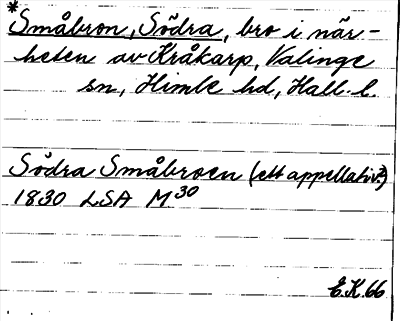 *Småbron, Södra, bro i när-
heten av Kråkarp, Valinge
sn, Himle hd, Hall. l.
Södra Småbroen (ett appellativ?)
1830 LSA M30
E.K.66